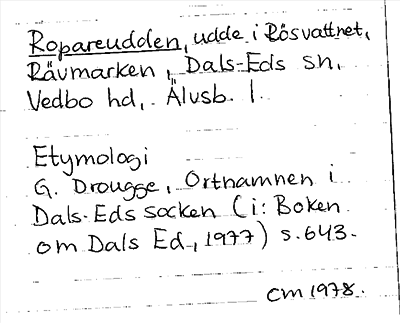 Ropareudden, udde i Rösvattnet,
Rävmarken, Dals-Eds sn,
Vedbo hd, Älvsb. l.
Etymologi
G. Drougge, Ortnamnen i
Dals-Eds socken (i: Boken
om Dals Ed, 1977) s. 643.
CM 1978.